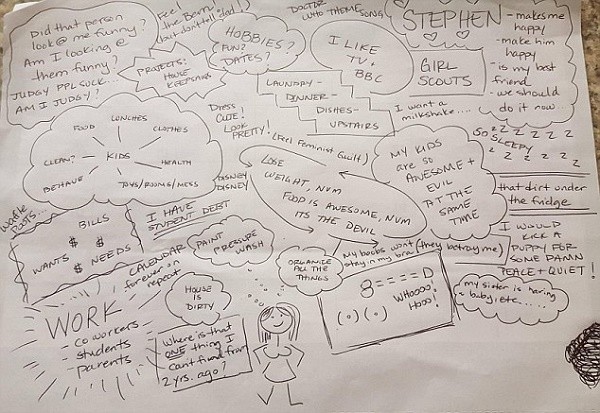 Did that person
look @ me funny?
Am I looking @
them funny?
JUDGY PPL SUCK...
AM I JUDGY?
Feel
like Berry
(but don't tell dad!)
PROJECTS:
HOUSE
KEEPSAKES
HOBBIES?
FUN?
DATES?
DOCTOR
WHO THEME SONG
I LIKE
TV +
BBC
STEPHEN
- makes me
happy
- make him
happy
- is my best
friend
- we should
do it now...
GIRL
SCOUTS
LAUNDRY-
DINNER-
DISHES-
UPSTAIRS
I want a
milkshake....
FOOD
LUNCHES
CLOTHES
CLEAN?
KIDS
HEALTH
BEHAVE
TOYS/ROOMS/MESS
DRESS
CUTE!
LOOK
PRETTY!
(Feel Feminist Guilt)
DISNEY
DISNEY
LOSE
WEIGHT, NUM
FOOD IS AWESOME, NUM
ITS THE DEVIL
MY KIDS
ARE SO
AWESOME +
EVIL
AT THE
SAME
TIME
SO
SLEEPY
Z Z Z Z Z
Z Z Z Z Z
that dirt under
the fridge
I WOULD
KICK A
PUPPY FOR
SOME DAMN
PEACE + QUIET!
waffle
BILLS
$ $
WANTS $ NEEDS
I HAVE
STUDENT DEBT
CALENDAR
forever on
repeat
PAINT
PRESSURE
WASH
ORGANIZE
ALL THE
THINGS
My boobs won't (they betray me)
stay in my bra!
8====D
WHOOOO
HOOO!
(.)(.)
my sister is having
baby etc.....
WORK
- co workers
- students
- parents
HOUSE
IS
DIRTY
Where is that
ONE thing I
can't find from
2 yrs. ago?